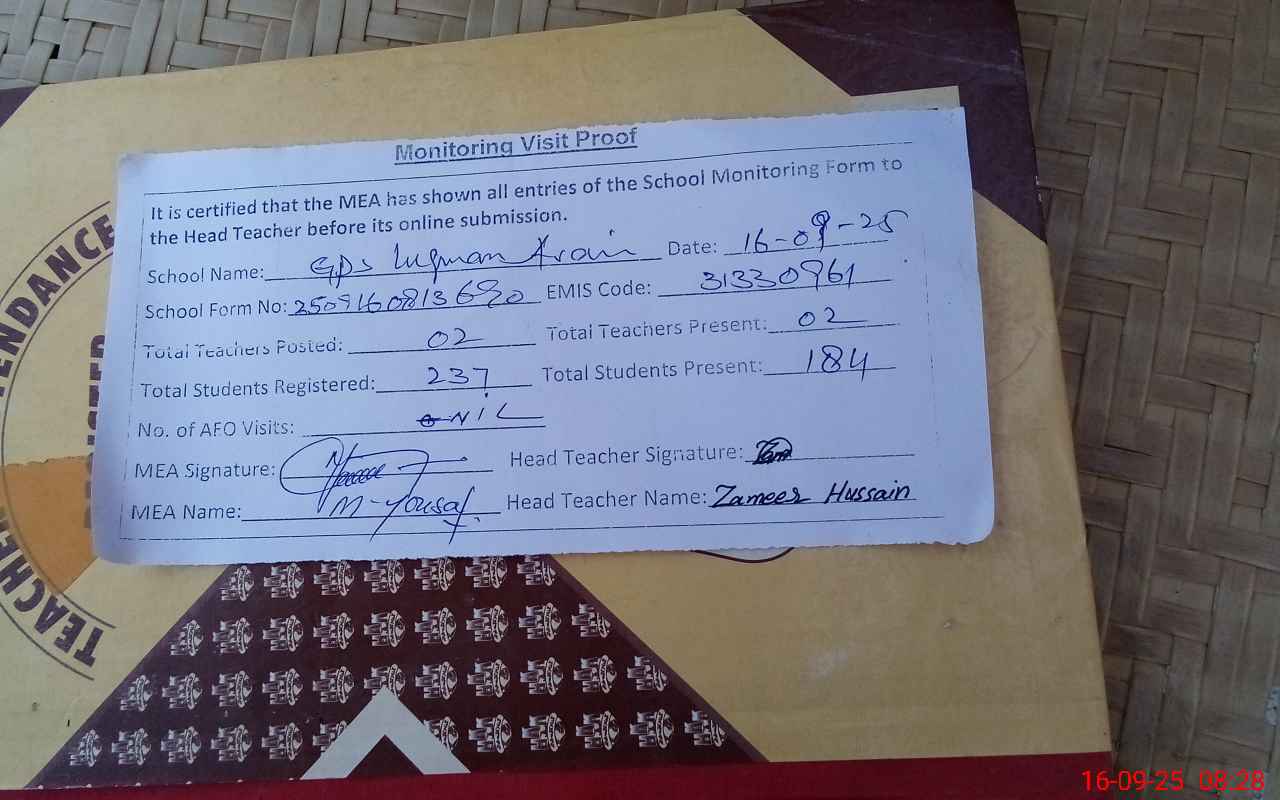 Monitoring Visit Proof
It is certified that the MEA has shown all entries of the School Monitoring Form to
the Head Teacher before its online submission.
School Name: GPS Luqman Arain Date: 16-09-25
School Form No: 2509160813690 EMIS Code: 31330961
Total Teachers Posted: 02 Total Teachers Present: 02
Total Students Registered: 237 Total Students Present: 184
No. of AEO Visits: NIL
MEA Signature: Head Teacher Signature:
MEA Name: M-Yousaf Head Teacher Name: Zameer Hussain
TEACHER ATTENDANCE
16-09-25 08:28